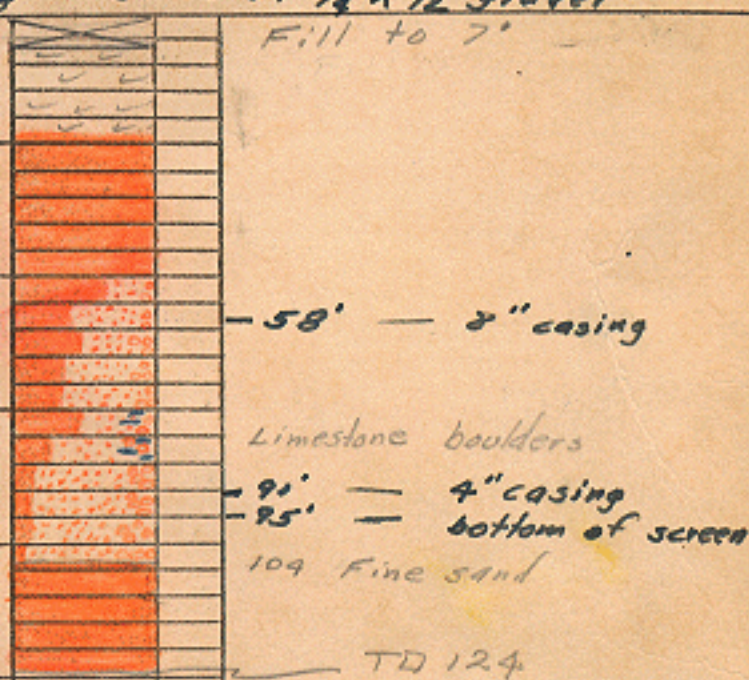 gravel
Fill to 7'
58' — 8" casing
Limestone boulders
91' — 4" casing
95' — bottom of screen
104 Fine sand
TD 124